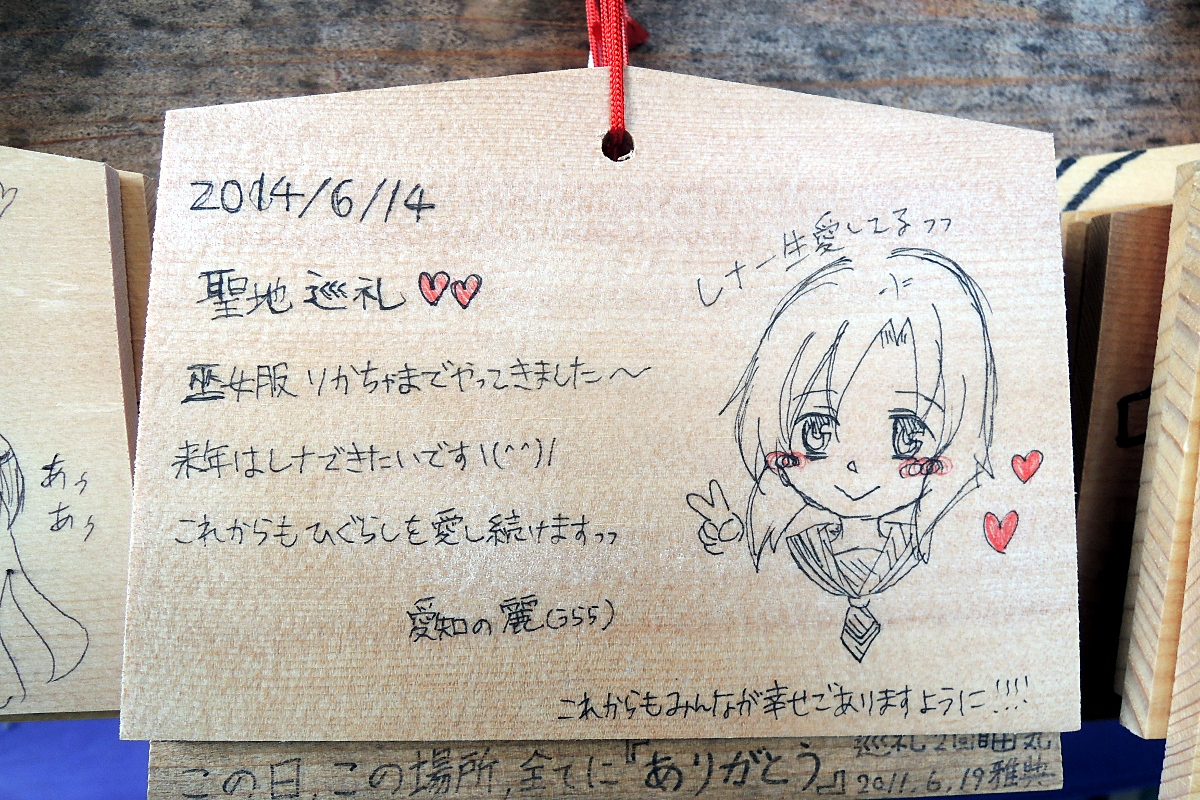 2014/6/14
聖地巡礼
巫女服りかちゃまでやってきました〜
来年はレナできたいです\(^^)/
これからもひぐらしを愛し続けますっっ
愛知の麗(うらら)
レナ一生愛してるっっ
これからもみんなが幸せでありますように!!!!
あぅ
あぅ
この日,この場所,全てに『ありがとう』
巡礼2回目
2011.6.19雅典